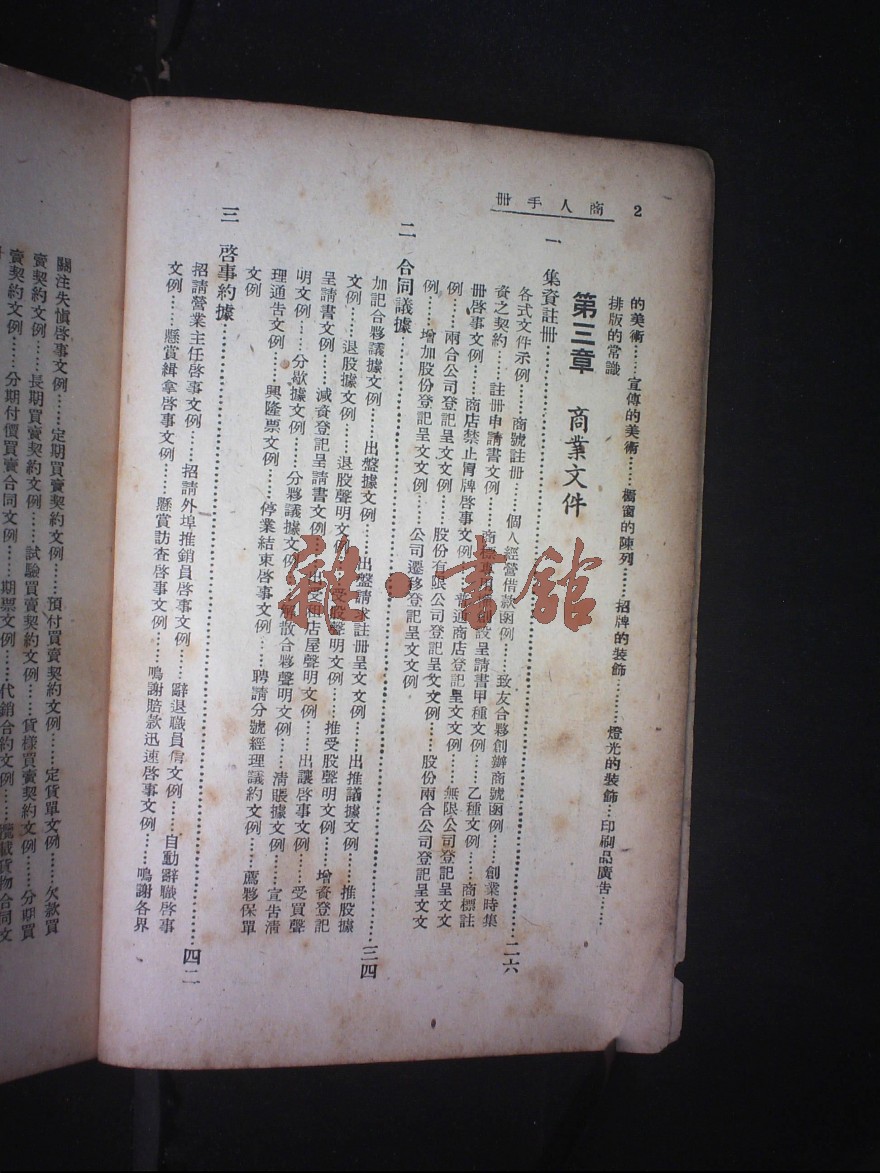 2 商人手冊
的美術……宣傳的美術……櫥窗的陳列……招牌的裝飾……燈光的裝飾……印刷品廣告……
排版的常識
第三章 商業文件
一 集資註冊……二六
各式文件示例……商號註冊……個人經營借款函例……致友合夥創辦商號函例……創業時集
資之契約……註冊申請書文例……商標專用創設呈請書甲種文例……乙種文例……商標註
冊啓事文例……商店禁止冒牌啓事文例……普通商店登記呈文文例……無限公司登記呈文文
例……兩合公司登記呈文文例……股份有限公司登記呈文文例……股份兩合公司登記呈文文
例……增加股份登記呈文文例……公司遷移登記呈文文例
二 合同議據……三四
加記合夥議據文例……出盤據文例……出盤請求註冊呈文文例……出推議據文例……推股據
文例……退股據文例……退股聲明文例……受股聲明文例……推受股聲明文例……增資登記
呈請書文例……減資登記呈請書文例……出受租店屋聲明文例……出讓啓事文例……受買聲
明文例……分歇據文例……分夥議據文例……解散合夥聲明文例……清賬據文例……宣告清
理通告文例……興隆票文例……停業結束啓事文例……聘請分號經理議約文例……薦夥保單
文例
三 啓事約據……四二
招請營業主任啓事文例……招請外埠推銷員啓事文例……辭退職員信文例……自動辭職啓事
文例……懸賞緝拿啓事文例……懸賞訪查啓事文例……鳴謝賠款迅速啓事文例……鳴謝各界
關注失愼啓事文例……定期買賣契約文例……預付買賣契約文例……定貨單文例……欠款買
賣契約文例……長期買賣契約文例……試驗買賣契約文例……貨樣買賣契約文例……分期買
賣契約文例……分期付價買賣合同文例……期票文例……代銷合約文例……攬載貨物合同文
雜·書館